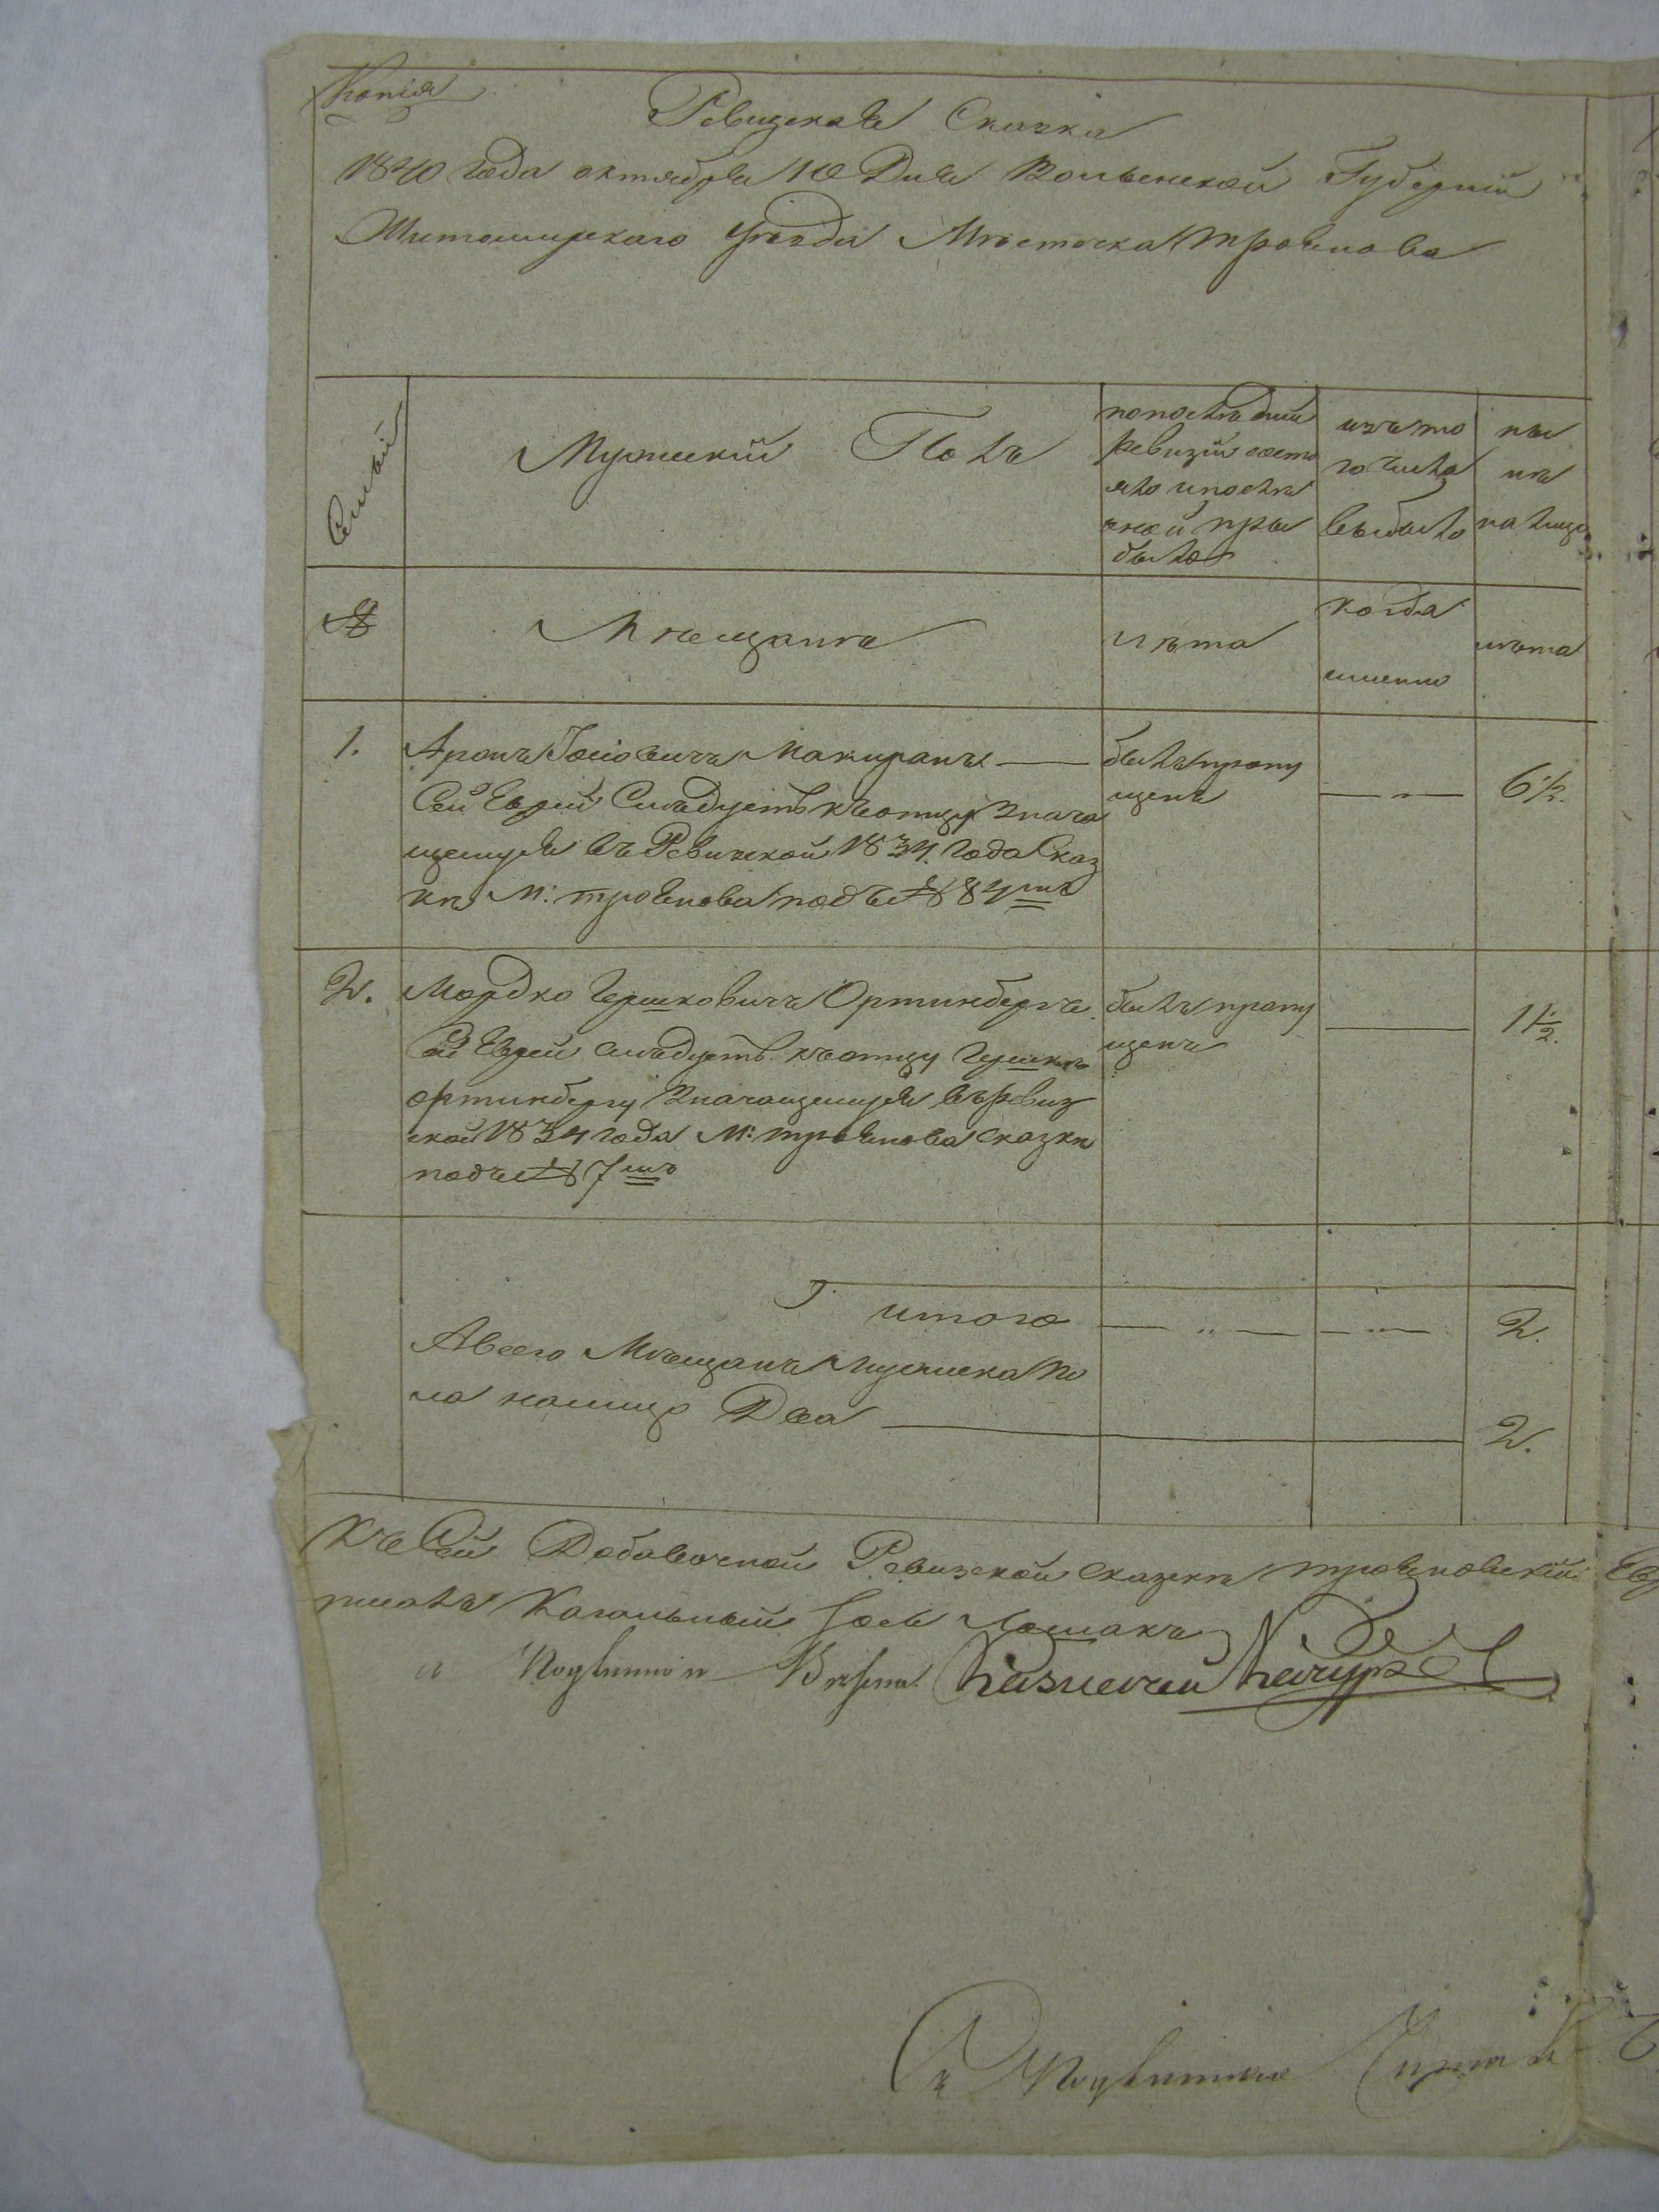 Копія
Ревизская Сказка
1840 года октября 10 Дня Волынской Губерніи
Житомирскаго уѣзда Мѣстечка трояпова
Семьи
Мужескій Полъ
попослѣдней
ревизіи состо
яло ипослѣ
оной при
было
изъ то
го числа
выбыло
ны
нѣ
на лицо
№
Мѣщанѣ
лѣта
когда
именно
лѣта
1.
Аронъ Іосіовичъ Макиранъ
Сей Еврей Слѣдуетъ къотцу Знача
щемуся въ Ревизской 1834. года Сказ
кѣ М: троянова подъ № 84мъ
былъ пропу
щенъ
6½.
2.
Мордко Гершковичъ Ортинбергъ.
Сей Еврей слѣдуетъ. къотцу Гершкѣ
ортинбергу Значащемуся въревиз
ской 1834 года М: троянова сказки
подъ № 7мъ
былъ пропу
щенъ
1½.
итого
2.
Авсего Мѣщанъ Мужеска По
ла налицо Два
2.
Къ Сей Добавочной Ревизской сказкѣ трояновскій Евр
писалъ Кагальный
Съ Подлиннымъ Вѣрно. Казначей
Съ Подлиннымъ